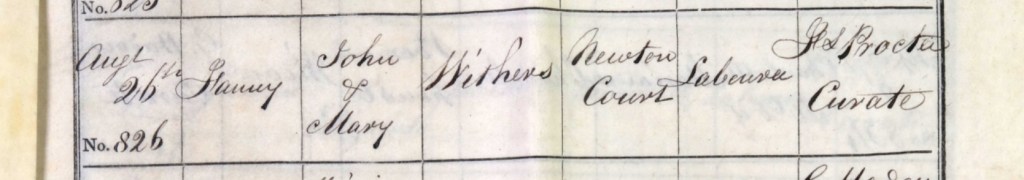 No. 825
Augt
26th
No. 826
Fanny
John
&
Mary
Withers
Newton
Court
Labourer
Procter
Curate